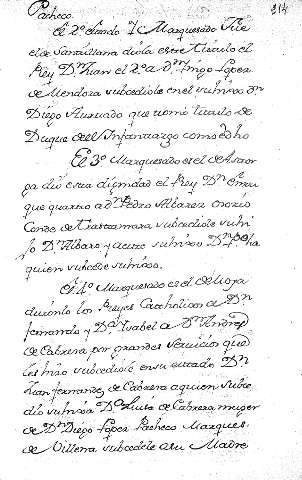 Pacheco.
214
El 2º titulo I Marquesado fue
el de Santillana diole este titulo el
Rey Dn Juan el 2º a Dn Iñigo Lopez
de Mendoza subcediole en el su hijo Dn
Diego Hurtado que tomo titulo de
Duque del Infantazgo como es dho
El 3º Marquesado es el de Astor
ga dio esta dignidad el Rey Dn Enrri
que quarto a Dn Pedro Albarez osorio
Conde de Trastamara subcediole su hi
jo Dn Albaro y a este su hijo Dn Po a
quien subcede su hijo.
El 4º Marquesado es el de Moya
dieronlo los Reyes Catholicos a Dn
fernando y Dª Isabel a Dn Andres
de Cabrera por grandes servicios que
les hizo subcediole en su estado Dn
Juan fernandez de Cabrera a quien subce
dio su hija Dª Luisa de Cabrera muger
de Dn Diego Lopez Pacheco Marques
de Villena subcedele a su Madre